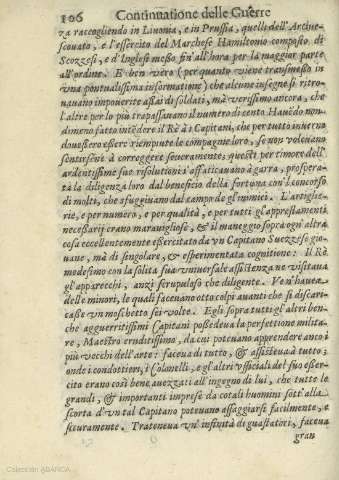 106 Continuatione delle Guerre
za raccogliendo in Liuonia, e in Prussia, quelli dell'Arciue-
scouato, e l'essercito del Marchese Hamiltonio composto di
Scozzesi, e d'Inglesi messo fin'all'hora per la maggior parte
all'ordine. E ben vero (per quanto viene transmesso in
vna pontualissima informatione) che alcune insegne si ritro-
uauano impouerite assai di soldati, mà verissimo ancora, che
l'altre per lo più trapassauano il numero di cento Hauēdo non
dimeno fatto intēdere il Rè à i Capitani, che per tutto inuerno
douessero essere riempiute le compagnie loro, se non voleuano
sentirsene à correggere seueramente; questi per timore dell'
ardentissime sue risolutioni s'affaticauano à garra, prospera-
ta la diligenza loro dal beneficio della fortuna con'l concorso
di molti, che sfuggiuano dal campo de gl'inimici. L'artiglie-
rie, e per numero, e per qualità, e per tutti gl'apprestamenti
necessarij erano marauigliose, & il maneggio sopra ogni altra
cosa eccellentemente essercitato da vn Capitano Suezzese gio-
uane, mà di singolare, & esperimentata cognitione: Il Rè
medesimo con la solita sua vniuersale assistenza ne visitaua
gl'apparecchi, anzi scrupuloso che diligente. Ve n'hauea
delle minori, le quali faceuano otto colpi auanti che si discari-
casse vn moschetto sei volte. Egli sopra tutti gl'altri ben-
che agguerritissimi Capitani possedeua la perfettione milita-
re, Maestro eruditissimo, da cui poteuano apprendere anco i
più vecchi dell'arte: faceua di tutto, & assisteua à tutto;
onde i condottieri, i Colonelli, e gl'altri vfficiali del suo esser-
cito erano così bene auezzati all'ingegno di lui, che tutte le
grandi, & importanti imprese da cotali huomini sott'alla
scorta d'vn tal Capitano poteuano assaggiarsi facilmente, e
sicuramente. Tratteneua vn'infinità di guastatori, faceua
gran
Colección ABANCA